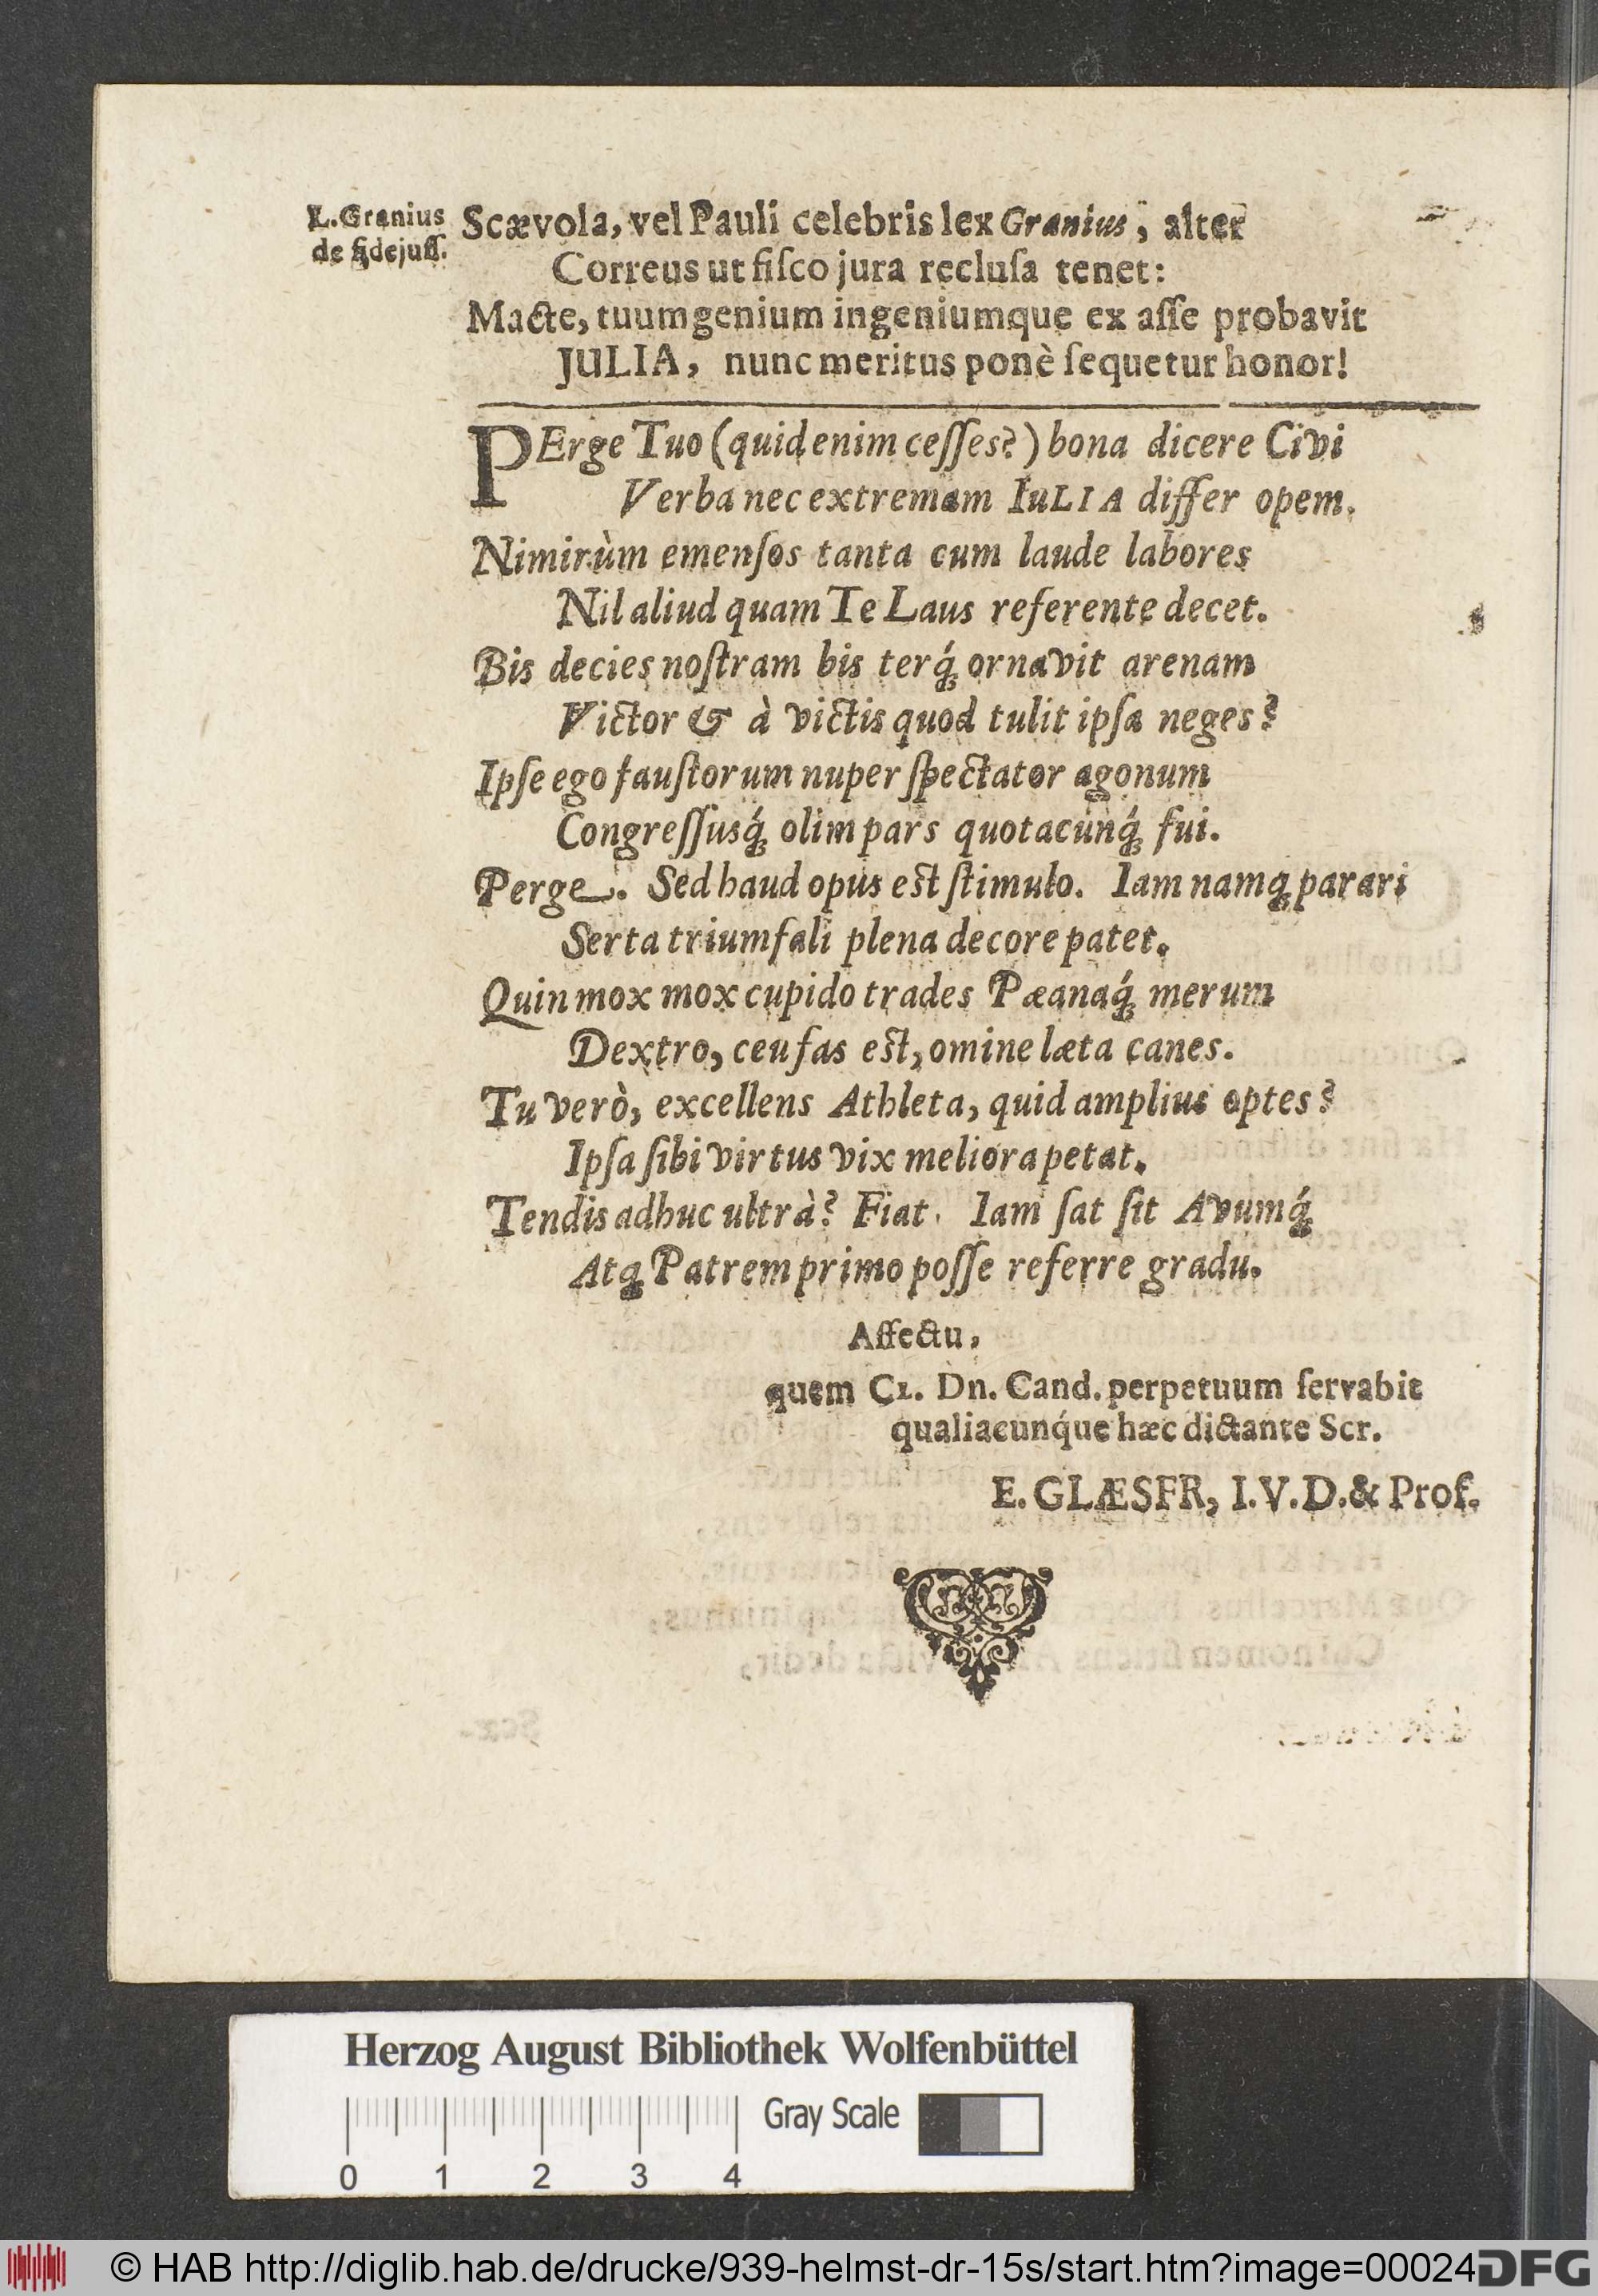 L. Granius
de fidejuſſ.
Scævola, vel Pauli celebris lex Granius, alter
Correus ut fiſco jura recluſa tenet:
Macte, tuum genium ingeniumque ex aſſe probavit
JULIA, nunc meritus ponè ſequetur honor!
PErge Tuo (quid enim ceſſes?) bona dicere Civi
Verba nec extremam IuLIA differ opem.
Nimirùm emenſos tanta cum laude labores
Nil aliud quam Te Laus referente decet.
Bis decies noſtram bis terq́ꝫ ornavit arenam
Victor & à victis quod tulit ipſa neges?
Ipſe ego fauſtorum nuper ſpectator agonum
Congreſſusq́ꝫ olim pars quotacunq́ꝫ fui.
Perge. Sed haud opus eſt ſtimulo. Iam namqꝫ parari
Serta triumfali plena decore patet.
Quin mox mox cupido trades Pæanaq́ꝫ merum
Dextro, ceu fas eſt, omine læta canes.
Tu verò, excellens Athleta, quid amplius optes?
Ipſa ſibi virtus vix meliora petat.
Tendis adhuc ultrà? Fiat. Iam ſat ſit Avumq́ꝫ
Atqꝫ Patrem primo poſſe referre gradu.
Affectu,
quem Cl. Dn. Cand. perpetuum ſervabit
qualiacunq́ue hæc dictante Scr.
E. GLÆSFR, I.V.D. & Prof.
Herzog August Bibliothek Wolfenbüttel
Gray Scale
0 1 2 3 4
© HAB http://diglib.hab.de/drucke/939-helmst-dr-15s/start.htm?image=00024
DFG